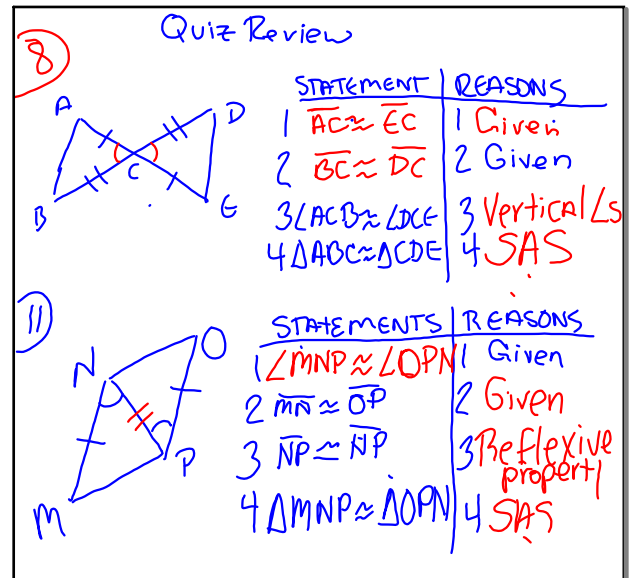 Quiz Review
8
A
D
C
B
E
STATEMENT REASONS
1 AC ≈ EC 1 Given
2 BC ≈ DC 2 Given
3 ∠ACB ≈ ∠DCE 3 Vertical ∠s
4 ΔABC ≈ ΔCDE 4 SAS
11
N
O
P
M
STATEMENTS REASONS
1 ∠MNP ≈ ∠OPN 1 Given
2 MN ≈ OP 2 Given
3 NP ≃ NP 3 Reflexive
property
4 ΔMNP ≈ ΔOPN 4 SAS